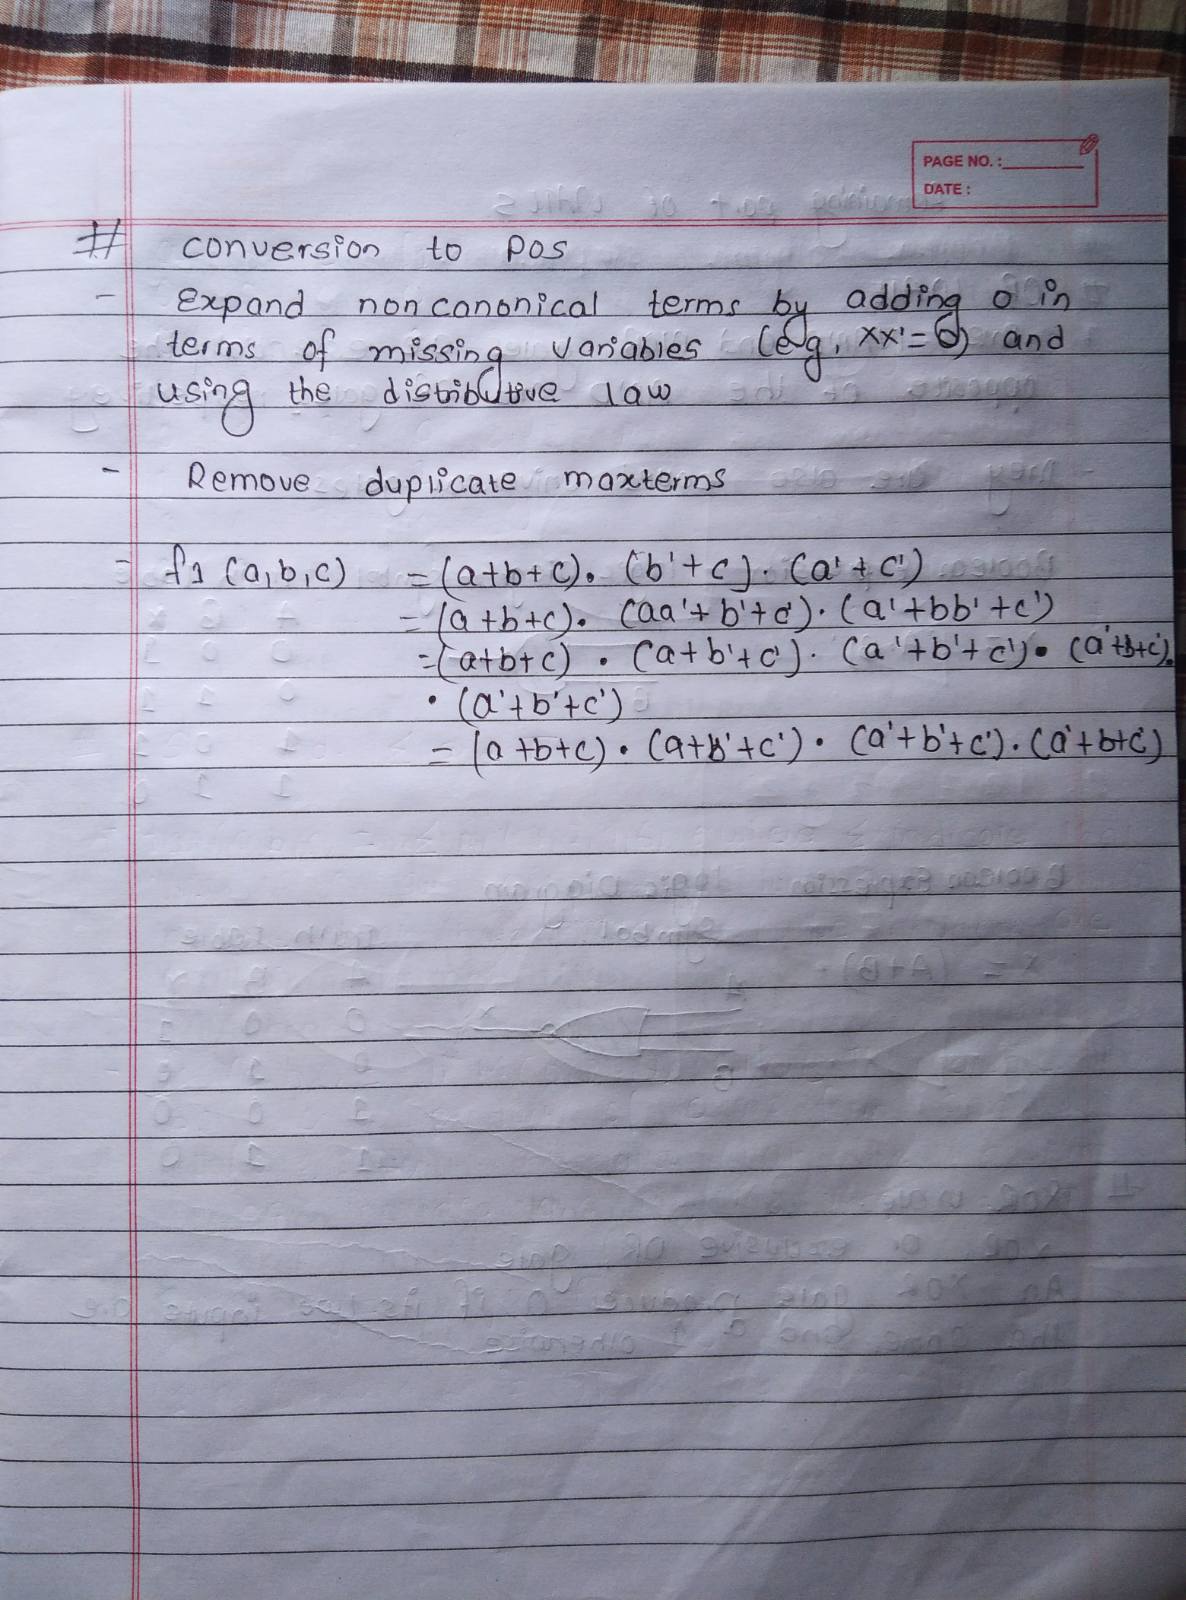 PAGE NO. :
DATE :
# conversion to pos
- Expand non canonical terms by adding 0 in
terms of missing variables (eg, xx'=0) and
using the distributive law
- Remove duplicate maxterms
- f1 (a,b,c) = (a+b+c). (b'+c). (a'+c')
= (a+b+c). (aa'+b'+c'). (a'+bb'+c')
=(a+b+c) . (a+b'+c'). (a'+b'+c'). (a'+b+c').
. (a'+b'+c')
= (a+b+c). (a+b'+c'). (a'+b'+c'). (a'+b+c')